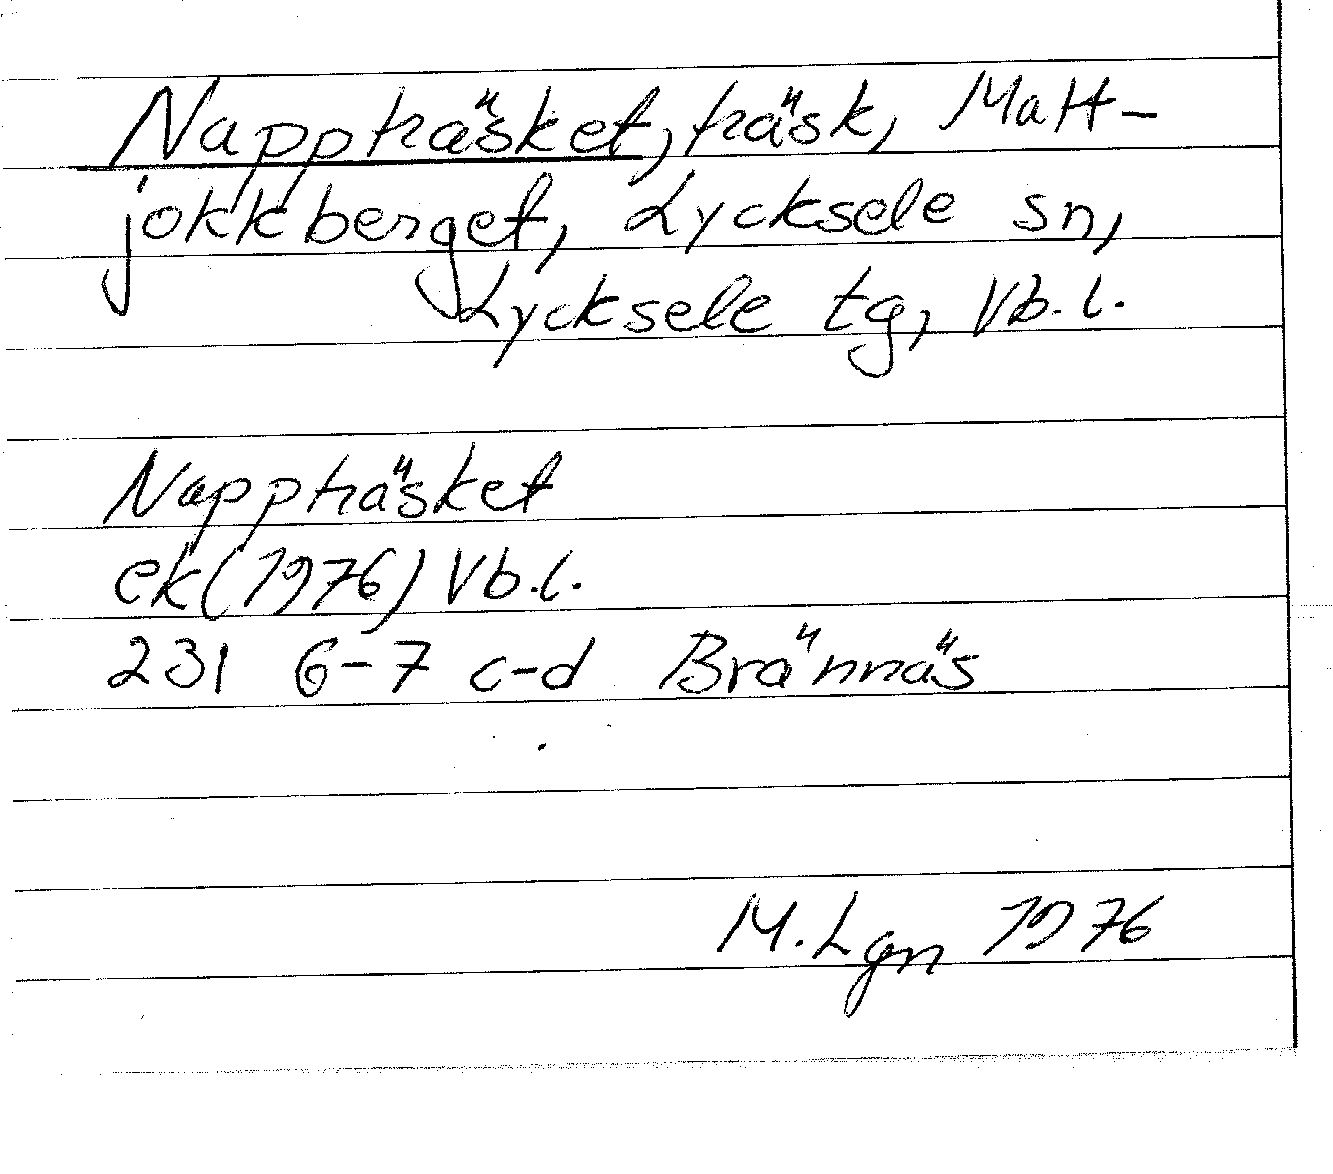 Nappträsket, träsk, Matt-
jokkberget, Lycksele sn,
Lycksele tg, Vb.l.
Nappträsket
ek (1976) Vb.l.
231 6-7 c-d Brännäs
M. Lgn 1976